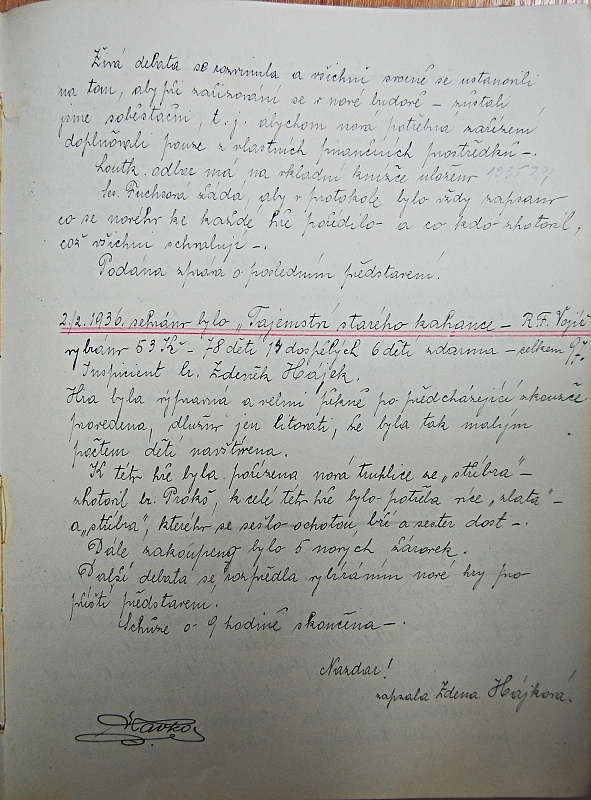 Živá debata se rozvinula a všichni svorně se ustanovili
na tom, aby při zařizování se v nové budově – zůstali
jsme soběstační, t. j. abychom nová potřebná zařízení
doplňovali pouze z vlastních finančních prostředků –.
Loutk. odbor má na vkladní knížce uloženo
Ses. Fuchsová žádá, aby v protokole bylo vždy zapsáno
co se nového ke každé hře pořídilo a co kdo zhotovil,
což všichni schvaluje –.
Podána zpráva o posledním představení.
2./2. 1936. sehráno bylo „Tajemství starého kahance – R. F. Vojíř
vybráno 53 Kč – 78 dětí 13 dospělých 6 dětí zdarma – celkem 97.
Inspicient br. Zdeněk Hájek.
Hra byla výpravná a velmi pěkně po předcházející zkoušce
provedena, dlužno jen litovati, že byla tak malým
počtem dětí navštívena.
K této hře byla pořízena nová truhlice ze „stříbra" –
zhotovil br. Prokš, k celé této hře bylo potřeba více „zlata" –
a „stříbra", kterého se sešlo ochotou bří a sester dost –.
Dále zakoupeno bylo 5 nových žárovek.
Další debata se rozpředla vybíráním nové hry pro
příští představení.
Schůze o 9 hodině skončena –.
Nazdar!
zapsala Zdena Hájková.